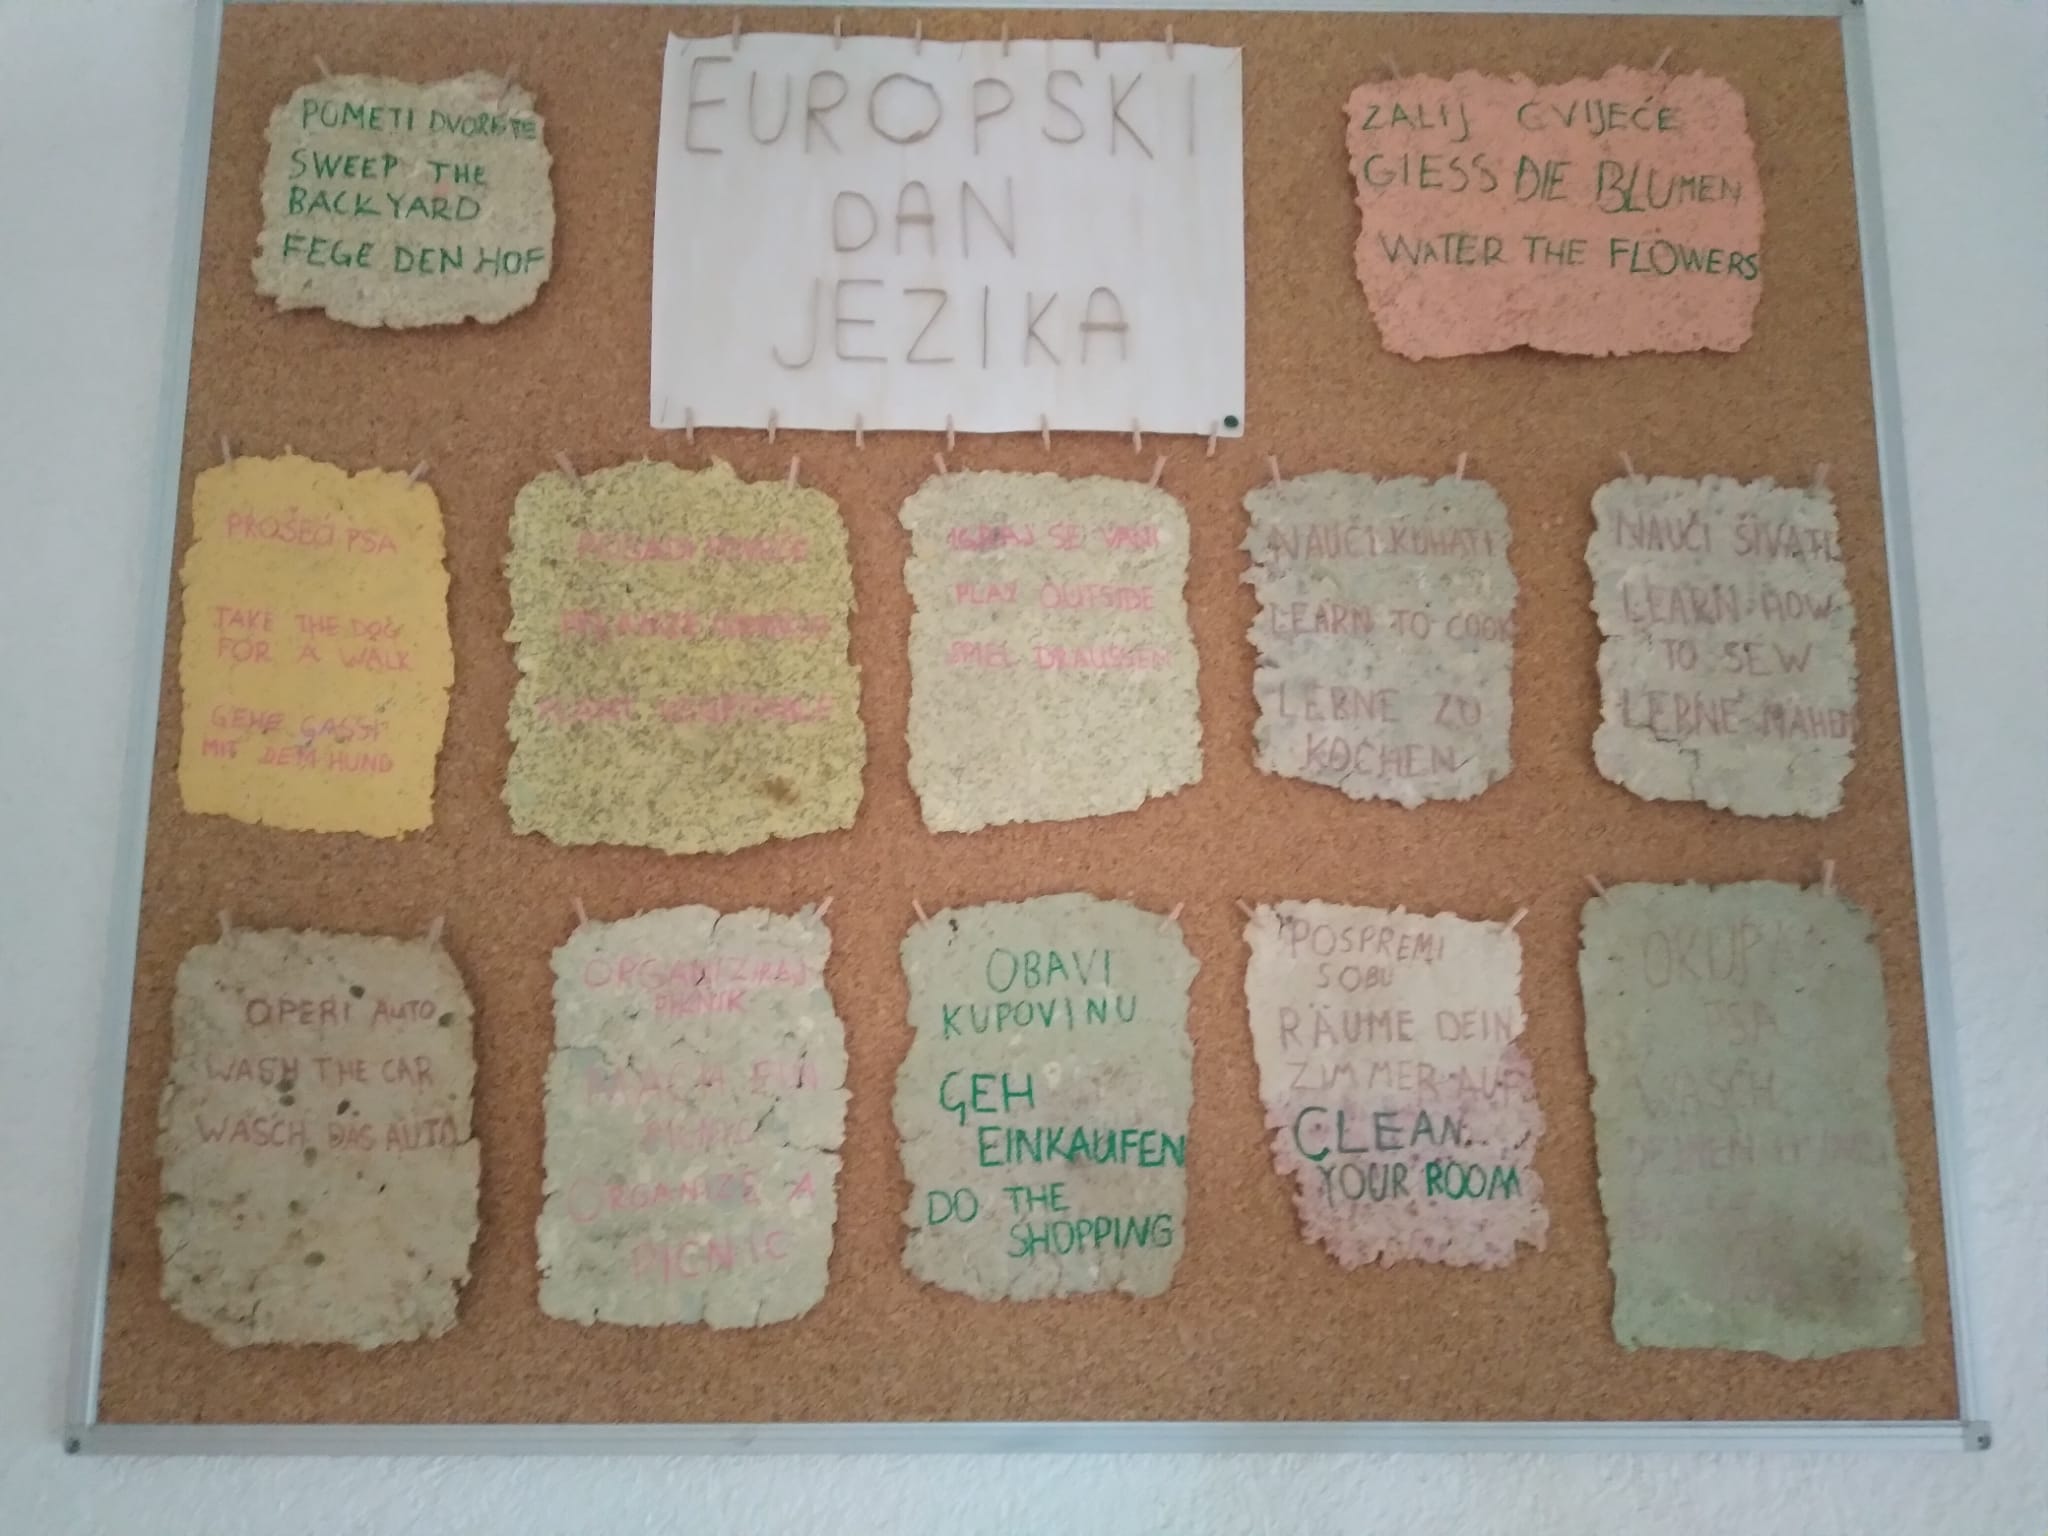 POMETI DVORIŠTE
SWEEP THE
BACKYARD
FEGE DEN HOF
EUROPSKI
DAN
JEZIKA
ZALIJ CVIJEĆE
GIESS DIE BLUMEN
WATER THE FLOWERS
PROŠEĆI PSA
TAKE THE DOG
FOR A WALK
GEHE GASSI
MIT DEM HUND
IGRAJ SE VANI
PLAY OUTSIDE
SPIEL DRAUSSEN
NAUČI KUHATI
LEARN TO COOK
LERNE ZU
KOCHEN
NAUČI ŠIVATI
LEARN HOW
TO SEW
LERNE NÄHEN
OPERI AUTO
WASH THE CAR
WASCH DAS AUTO
ORGANIZIRAJ
PIKNIK
MACH EIN
ORGANIZE A
PICNIC
OBAVI
KUPOVINU
GEH
EINKAUFEN
DO THE
SHOPPING
POSPREMI
SOBU
RÄUME DEIN
ZIMMER AUF
CLEAN
YOUR ROOM
PSA
WASCH
DEINEN HUND